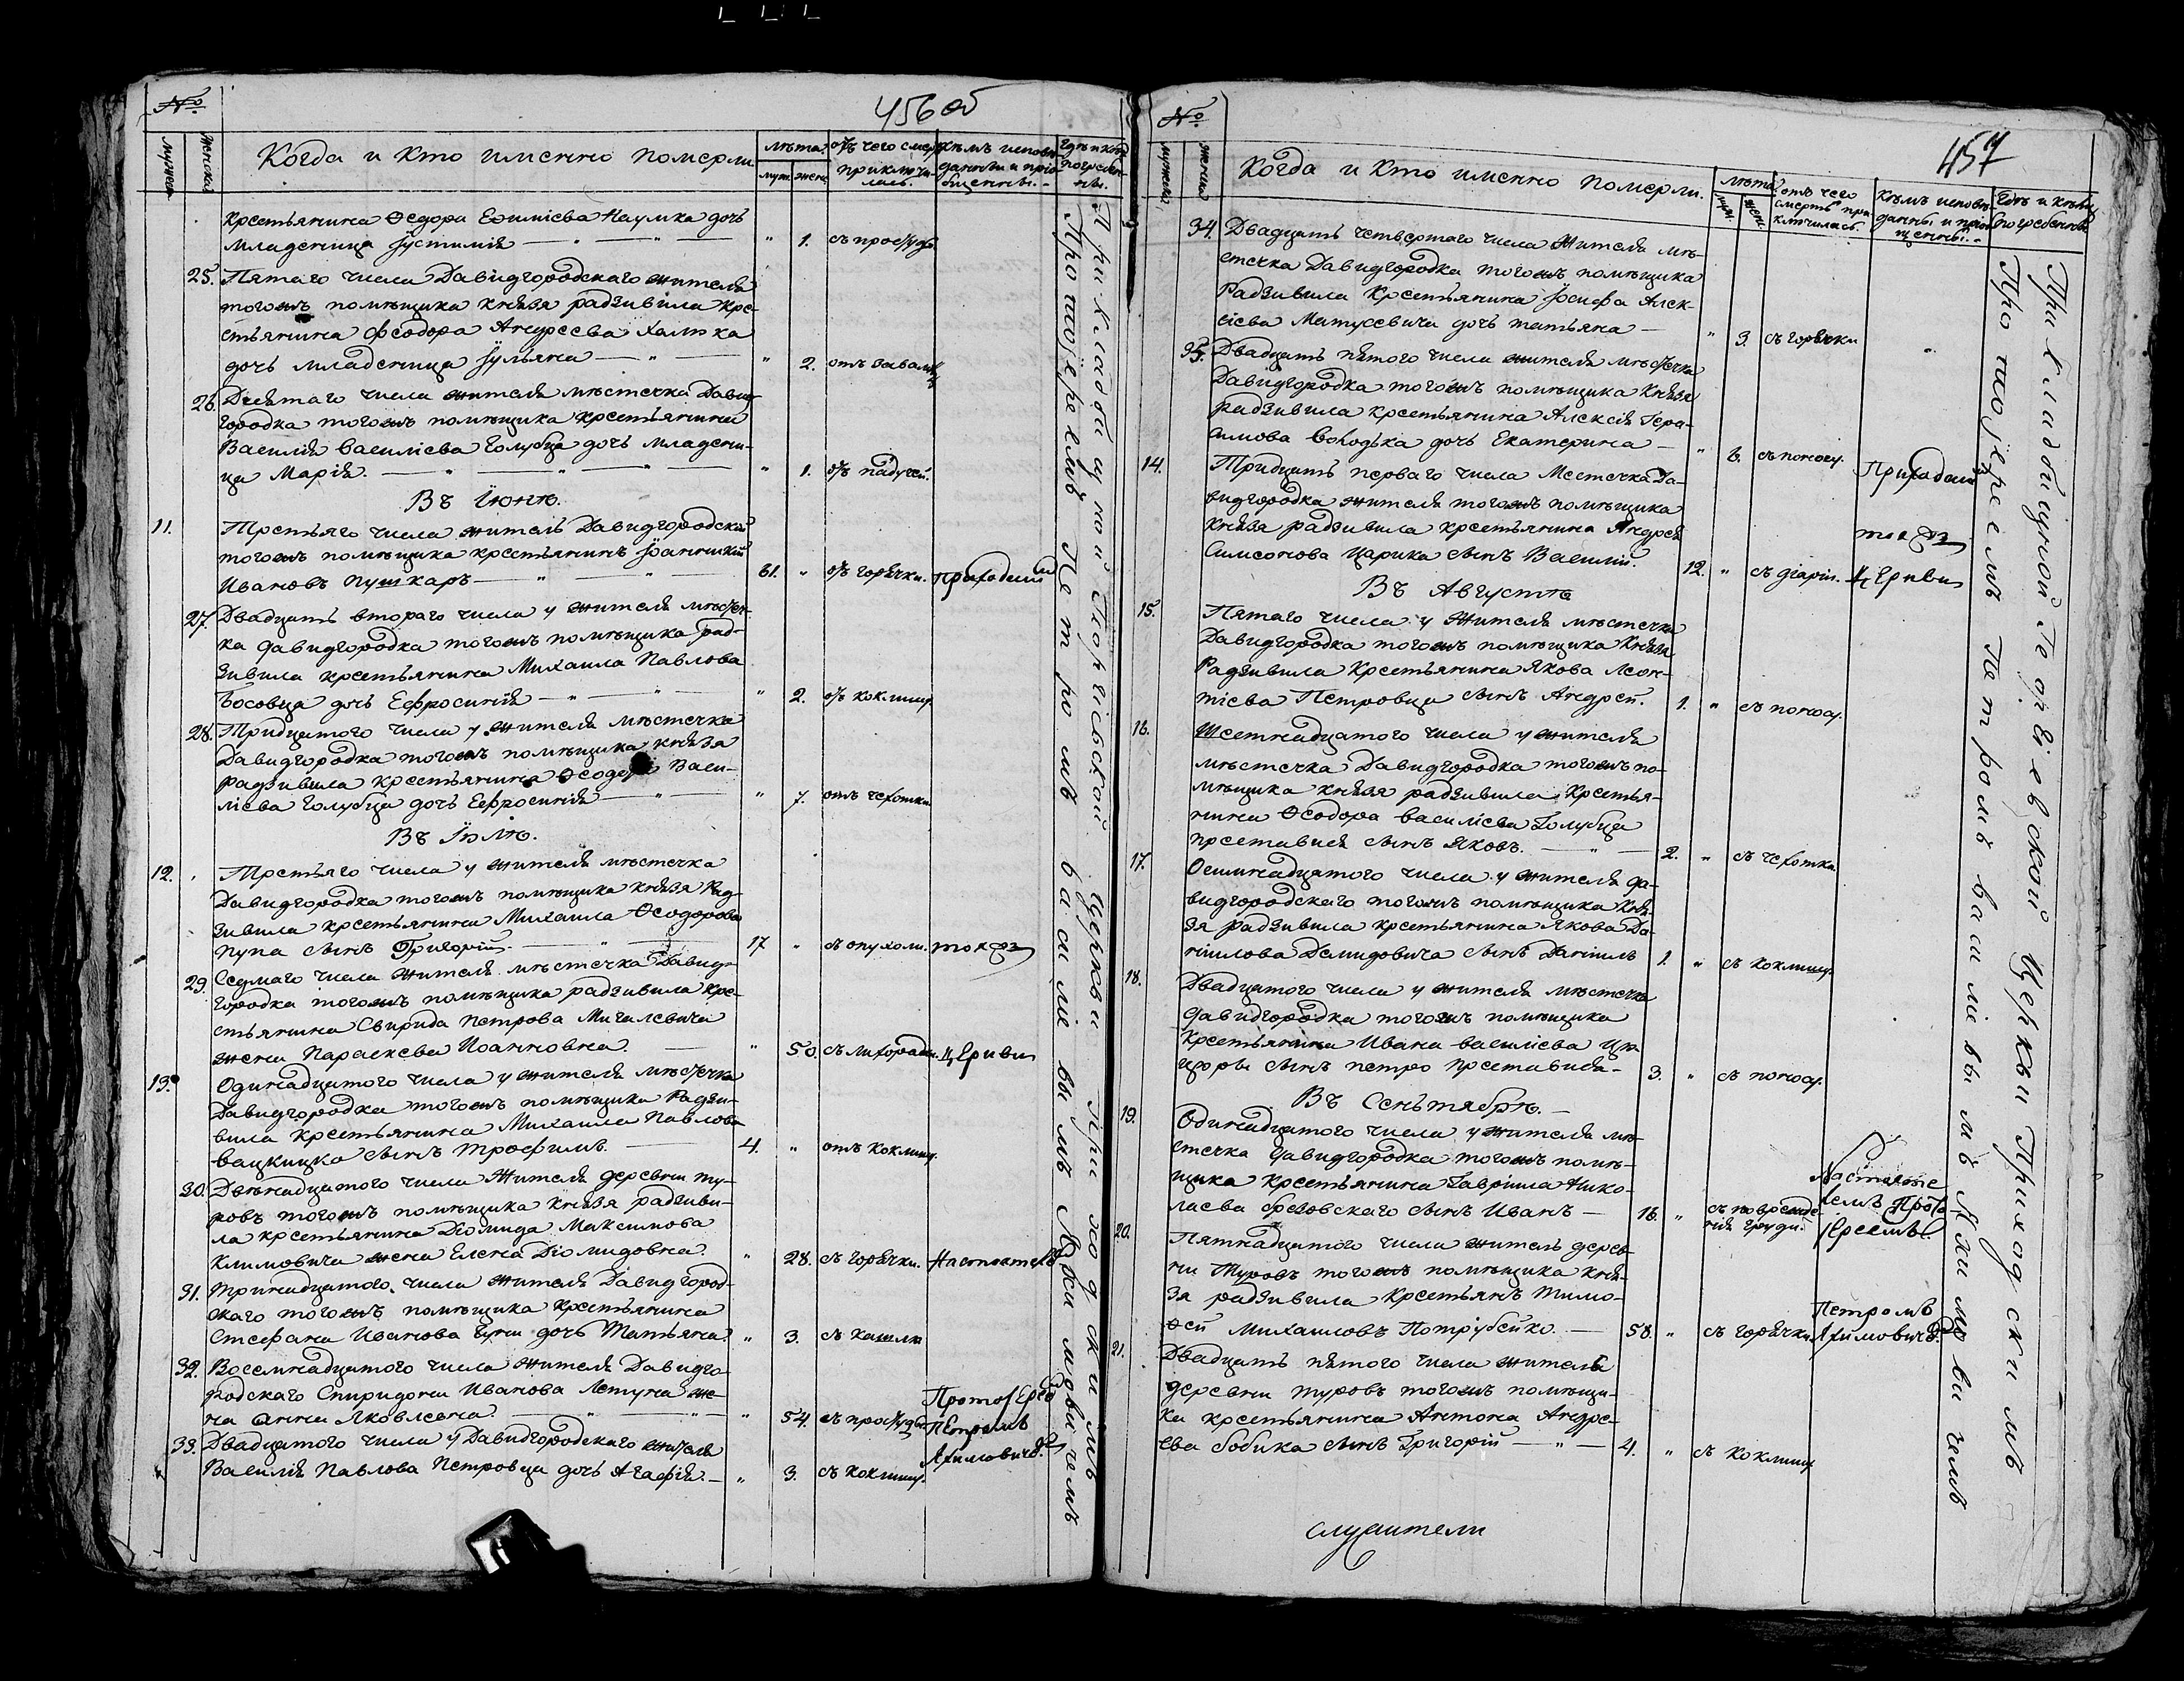 №
456 об
мужеска
женска
Когда и кто именно померли
лѣта.
муж. жен.
отъ чего смерть приключилась.
кѣмъ исповѣданы и пріобщены.
гдѣ и кѣмъ погребены.
крестьянина Ѳедора Ефимієва Наумка дочь
младеница Іустинія — " — " — " 1. съ простуды
25. Пятаго числа Давидгородскаго жителя
тогожъ помѣщика князя радзивила кре-
стьянина Феодора Андреева
дочь младеница Іульяна — " — " 2. отъ
26. Девятаго числа жителя мѣстечка Давид-
городка тогожъ помѣщика крестьянина
Василія василієва Голубца дочь младени-
ца Марія. — " — " — " 1. отъ падучей.
Въ Іюнѣ.
11. Третьяго числа житель Давидгородскій
тогожъ помѣщика крестьянинъ Іоанникій
Ивановъ пушкаръ — " — " 61. " отъ горячки. приходский
27. Двадцать втораго числа у жителя мѣстеч-
ка давидгородка тогожъ помѣщика рад-
зивила крестьянина Михаила Павлова
Босовца дочь Ефросинія — " — " " 2. отъ коклюш.
28. Тридцатого числа у жителя мѣстечка
Давидгородка тогожъ помѣщика князя
радзивила крестьянина Ѳеодора Васи-
лієва Голубца дочь Ефросинія — " — " 7. отъ чехотки
Въ Іюлѣ.
12. Третьяго числа у жителя мѣстечка
Давидгородка тогожъ помѣщика князя Рад-
зивила крестьянина Михаила Ѳеодорова
пупа сынъ Григорій. — " — 17 " съ опухоли. тоя же
29. Седмаго числа жителя мѣстечка Давид-
городка тогожъ помѣщика радзивила кре-
стьянина Свирида петрова Мигалевича
жена Параскева Иоанновна. — " 50. съ лихорадк. церкви
13. Одинадцатого числа у жителя мѣстечка
Давидгородка тогожъ помѣщика Радзи-
вила крестьянина Михаила Павлова
вацкицко сынъ трофимъ. — 4. " отъ коклюш.
30. Двѣнадцатого числа Жителя деревни ту-
ровъ тогожъ помѣщика князя радзиви-
ла крестьянина Діомида Максимова
Климовича жена Елена Діомидовна. " 28. съ горячки. Настоятелемъ
31. тринадцатого числа жителя Давидгород-
скаго тогожъ помѣщика крестьянина
Стефана Иванова дочь Татьяна. " 3. съ кашля
32. Восемнадцатого числа жителя Давидго-
родскаго Спиридона Иванова Летуна же-
на Анна Яковлевна. — " — " 54. съ простуды Протоіереемъ Петромъ
33. Двадцатого числа у Давидгородскаго жителя
Василія Павлова Петровца дочь Агафія. — " 3. съ коклюш. Якимовичемъ
При кладбищной Георгієвской Церкви приходскимъ
Протоіереемъ Петромъ василієвымъ Якимовичемъ
№
457
мужеска
женска
Когда и кто именно померли.
лѣта
муж. жен.
отъ чего смерть приключилась.
кѣмъ исповѣданы и пріобщены.
Гдѣ и кѣмъ погребены
34. Двадцать четвертаго числа Жителя мѣ-
стечка Давидгородка тогожъ помѣщика
Радзивила Крестьянина Іосифа Алек-
сієва Матусевича дочь татьяна — " 3. съ горячки "
35. Двадцать пятого числа жителя мѣстечка
Давидгородка тогожъ помѣщика Князя
радзивила крестьянина Алексія Гера-
симова Володька дочь Екатерина — " 6. съ поносу.
14. Тридцать перваго числа Местечка Да-
видгородка жителя тогожъ помѣщика
Князя радзивила крестьянина Андрея
Симеонова Царика сынъ Василій. 12. " съ діаріи. Приходския тоя же Церкви
Въ Августѣ
15. Пятаго числа у Жителя мѣстечка
Давидгородка тогожъ помѣщика Князя
Радзивила Крестьянина Якова Леон-
тієва Петровца сынъ Андрей. 1. " съ поносу.
16. Шестнадцатого числа у жителя
мѣстечка Давидгородка тогожъ по-
мѣщика князя радзивила Крестья-
нина Ѳеодора василієва Голубца
преставися сынъ Яковъ. — " — 2. " съ чехотки
17. Осмнадцатого числа у жителя да-
видгородскаго тогожъ помѣщика Кня-
зя радзивила крестьянина Якова Да-
ніилова Демидовича сынъ Даніилъ 1. " съ коклюш.
18. Двадцатого числа у жителя мѣстечка
давидгородка тогожъ помѣщика
Крестьянина Ивана василієва
сынъ петро преставися — 3. " съ поносу.
Въ Сеньтябрѣ. —
19. Одинадцатого числа у жителя мѣ-
стечка давидгородка тогожъ помѣ-
щика крестьянина Гавріила Нико-
лаева брезовскаго сынъ Иванъ — 16. " съ поврежде-
нія груди. Настоятелемъ Протоіереемъ
20. Пятнадцатого числа житель дерев-
ни Туровъ тогожъ помѣщика кня-
зя радзивила Крестьянъ Тимо-
ѳей Михаиловъ Потрубейко. — 58. " съ горячки Петромъ Якимовичемъ
21. Двадцать пятого числа жителя
деревни туровъ тогожъ помѣщи-
ка крестьянина Антона Андре-
ева бобика сынъ Григорій — " — 4. " съ коклюш.
При кладбищной Георгієвской Церкви Приходскимъ
Протоіереемъ Петромъ василієвымъ Якимовичемъ
служители